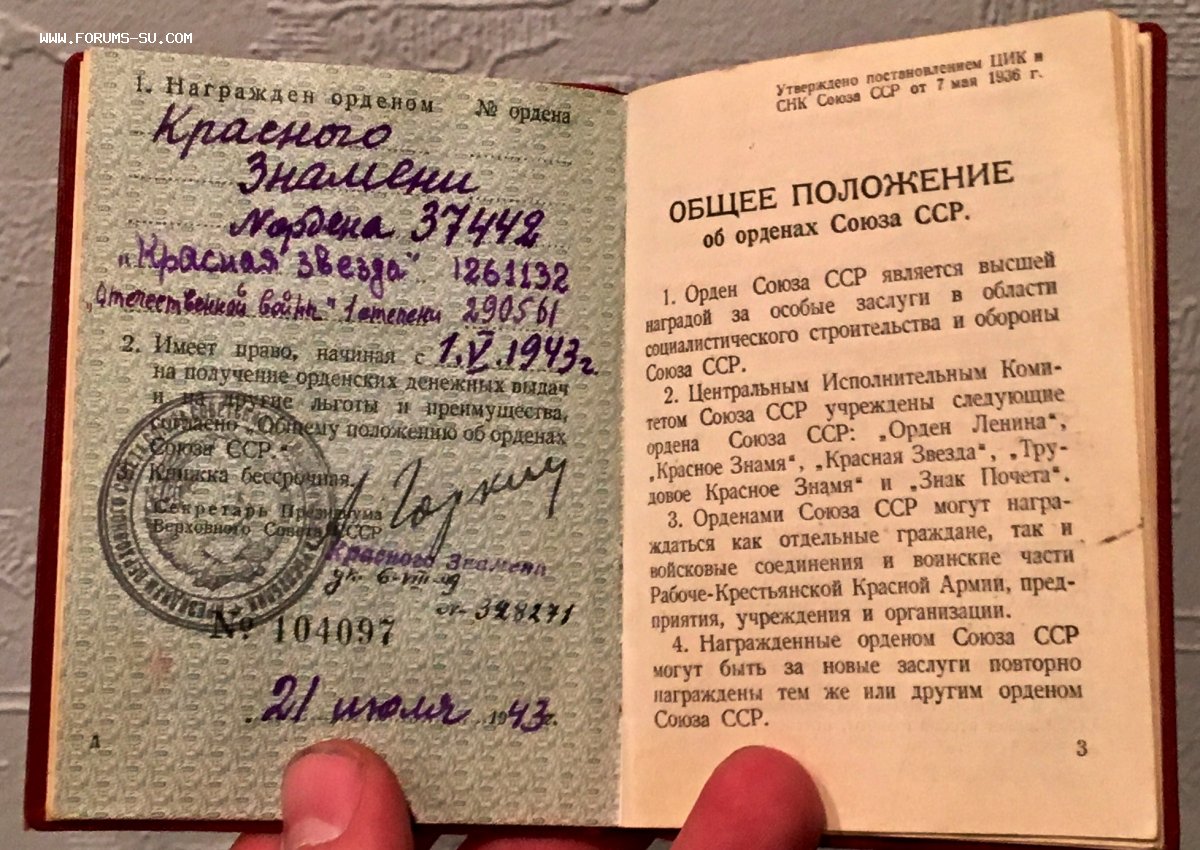 WWW.FORUMS-SU.COM
1. Награжден орденом № ордена
Красного
Знамени
№ ордена 37442
„Красная звезда" 1261132
„Отечественной войны" 1 степени 290561
2. Имеет право, начиная с 1.V.1943г.
на получение орденских денежных выдач
и на другие льготы и преимущества,
согласно „Общему положению об орденах
Союза ССР."
Книжка бессрочная.
Секретарь Президиума
Верховного Совета СССР
Горкин
Красного Знамени
№ 328271
№ 104097
21 июля 1943г.
Утверждено постановлением ЦИК и
СНК Союза ССР от 7 мая 1936 г.
ОБЩЕЕ ПОЛОЖЕНИЕ
об орденах Союза ССР.
1. Орден Союза ССР является высшей
наградой за особые заслуги в области
социалистического строительства и обороны
Союза ССР.
2. Центральным Исполнительным Коми-
тетом Союза ССР учреждены следующие
ордена Союза ССР: „Орден Ленина",
„Красное Знамя", „Красная Звезда", „Тру-
довое Красное Знамя" и „Знак Почета".
3. Орденами Союза ССР могут награ-
ждаться как отдельные граждане, так и
войсковые соединения и воинские части
Рабоче-Крестьянской Красной Армии, пред-
приятия, учреждения и организации.
4. Награжденные орденом Союза ССР
могут быть за новые заслуги повторно
награждены тем же или другим орденом
Союза ССР.
3